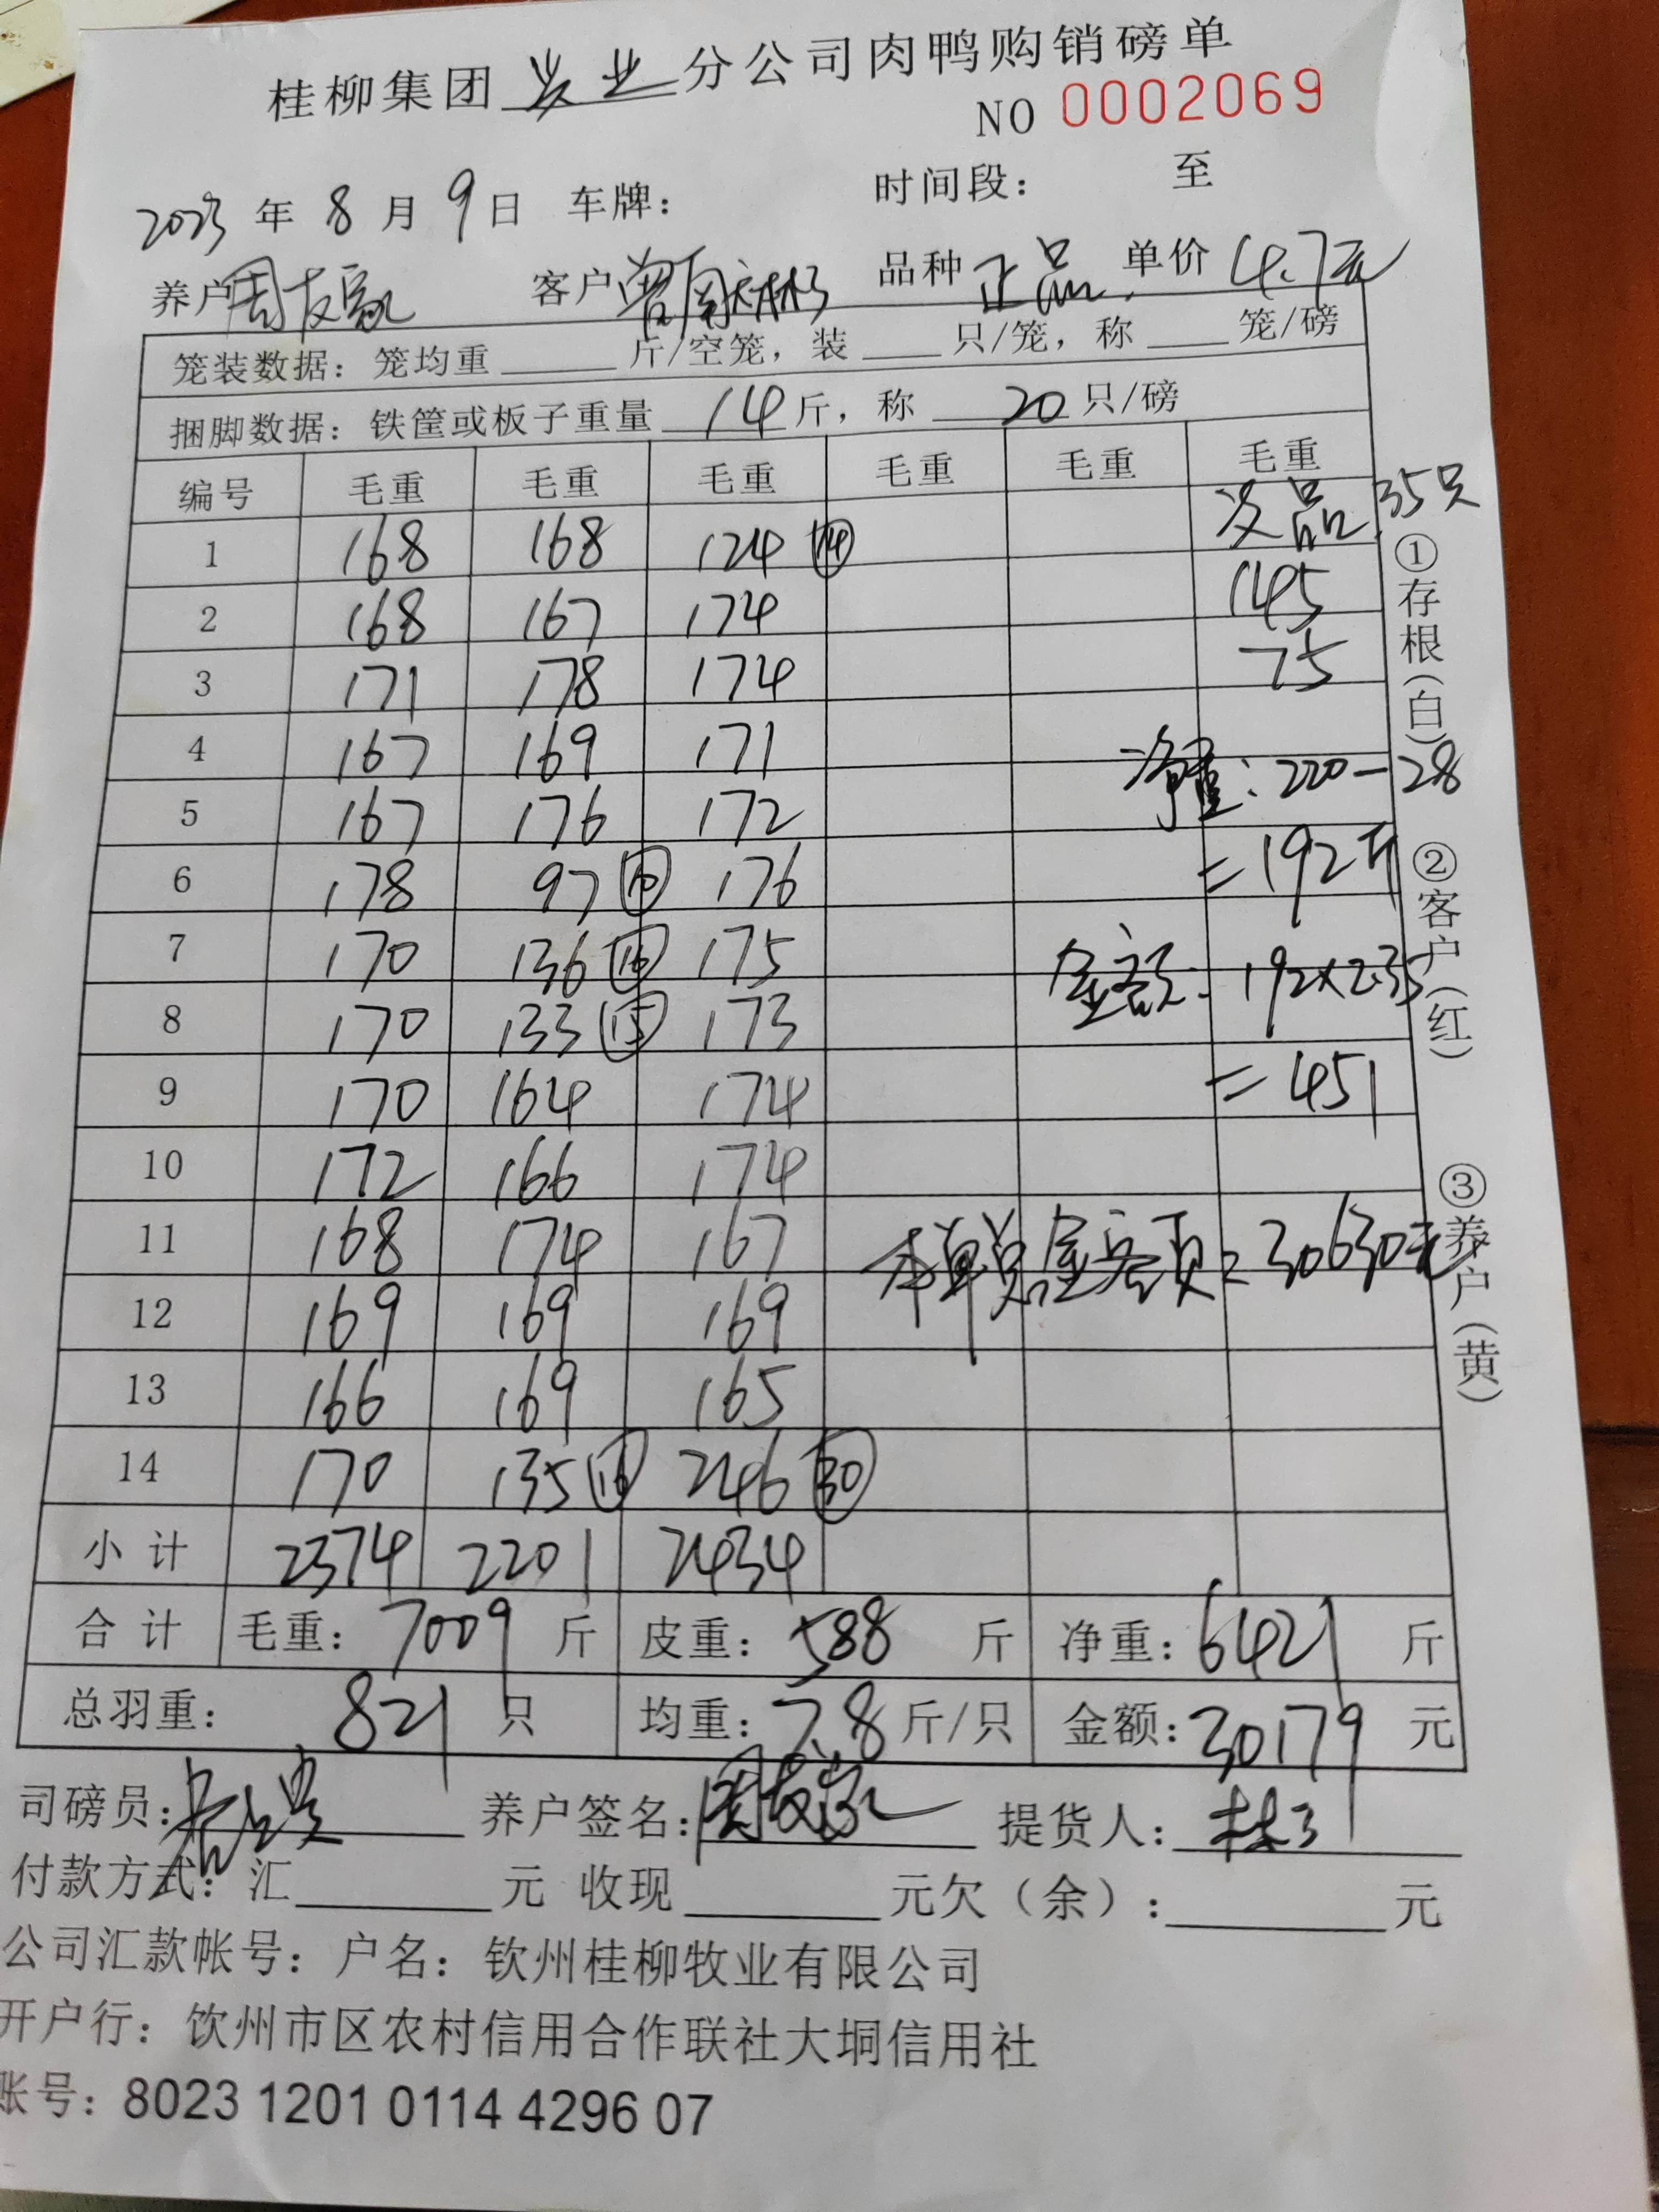 桂柳集团兴业分公司肉鸭购销磅单
NO 0002069
2023年8月9日 车牌: 时间段: 至
养户周友家 客户曾 品种正品 单价4.7元
笼装数据: 笼均重 斤/空笼, 装 只/笼, 称 笼/磅
捆脚数据: 铁筐或板子重量 14 斤, 称 20 只/磅
编号 毛重 毛重 毛重 毛重 毛重 毛重
次品 35只
1 168 168 124 ⑭
2 168 167 174 145
3 171 178 174 75
4 167 169 171 净重: 220-28
5 167 176 172
6 178 97 ⑩ 176 =192斤
7 170 136 ⑯ 175 金额: 192×2.35
8 170 133 ⑮ 173
9 170 164 174 =451
10 172 166 174
11 168 174 167 本单总金额: 30630元
12 169 169 169
13 166 169 165
14 170 135 ⑯ 246 ㉚
小计 2374 2201 2434
合计 毛重: 7009 斤 皮重: 588 斤 净重: 6421 斤
总羽重: 821 只 均重: 7.8 斤/只 金额: 30179 元
司磅员: 养户签名: 周友家 提货人:
付款方式: 汇 元 收现 元欠(余): 元
公司汇款帐号: 户名: 钦州桂柳牧业有限公司
开户行: 钦州市区农村信用合作联社大垌信用社
账号: 8023 1201 0114 4296 07
①存根(白) ②客户(红) ③养户(黄)